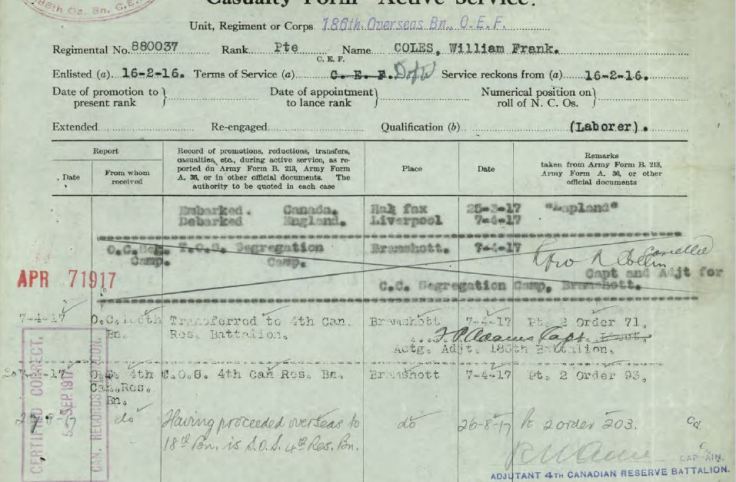 186th Os. Bn. C.E.F.
Casualty Form Active Service.
Unit, Regiment or Corps 186th Overseas Bn. C.E.F.
Regimental No. 880037 Rank Pte Name COLES, William Frank.
C. E. F.
Enlisted (a) 16-2-16. Terms of Service (a) C. E. F. DofW Service reckons from (a) 16-2-16.
Date of promotion to present rank } Date of appointment to lance rank } Numerical position on roll of N. C. Os. }
Extended Re-engaged Qualification (b) (Laborer).
Report
Date
From whom received
Record of promotions, reductions, transfers, casualties, etc., during active service, as reported on Army Form B. 213, Army Form A. 36, or in other official documents. The authority to be quoted in each case
Place
Date
Remarks
taken from Army Form B. 213, Army Form A. 36, or other official documents
Embarked. Canada. Halifax 25-3-17 "Lapland"
Debarked England. Liverpool 7-4-17
O.C. Seg. Camp. T.O.S. Segregation Camp. Bramshott. 7-4-17
Cancelled
Capt and Adjt for
O.C. Segregation Camp, Bramshott.
APR 7 1917
7-4-17 O.C. 186th Bn. Transferred to 4th Can. Res. Battalion. Bramshott 7-4-17 Pt. 2 Order 71.
Adams Capt.
Actg. Adjt. 186th Battalion.
4-17 O.C. 4th Can. Res. Bn. T.O.S. 4th Can Res. Bn. Bramshott 7-4-17 Pt. 2 Order 93.
27-8-17 do Having proceeded overseas to 18th Bn. is S.O.S. 4th Res. Bn. do 26-8-17 Pt 2 order 203.
CAPTAIN.
ADJUTANT 4TH CANADIAN RESERVE BATTALION.
CERTIFIED CORRECT.
5 SEP 1917
CAN. RECORDS